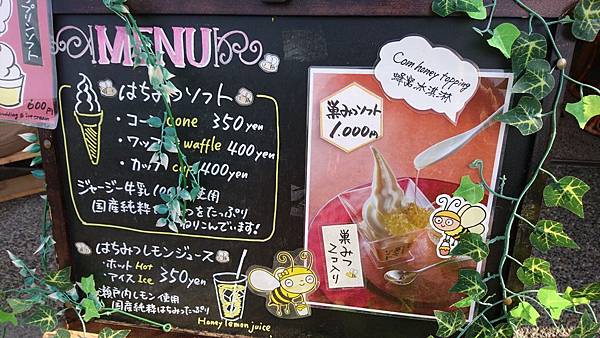 プリンソフト
600円
pudding & ice cream
MENU
はちみつソフト
・コーン cone 350 yen
・ワッフル waffle 400 yen
・カップ cup 400 yen
ジャージー牛乳100%使用
国産純粋はちみつをたっぷり
ねりこんでいます!
はちみつレモンジュース
・ホット Hot
・アイス Ice 350 yen
瀬戸内レモン使用
国産純粋はちみつたっぷり
Honey lemon juice
Com honey topping
蜂窩冰淇淋
巣みつソフト
1.000円
巣みつ
2コ入り